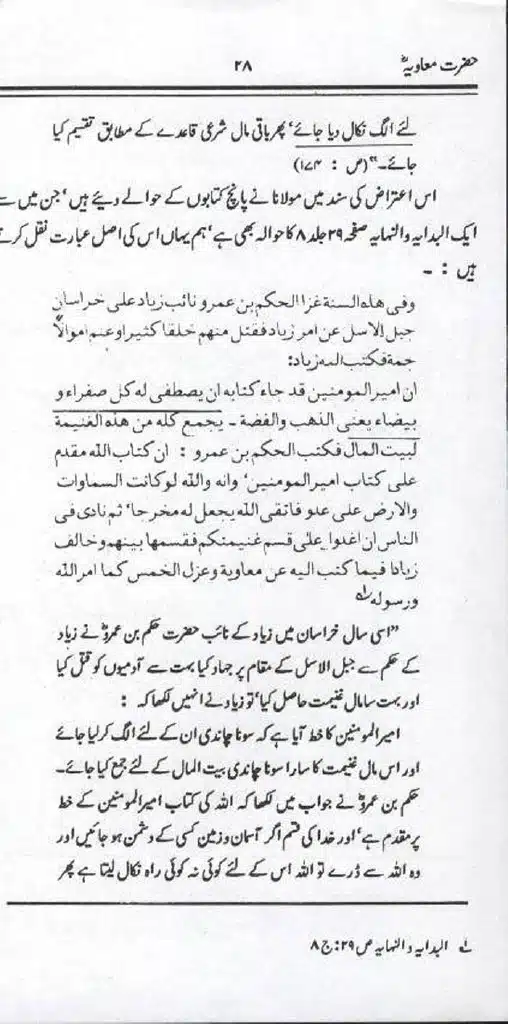 حضرت معاویہؓ ۲۸
لئے الگ نکال دیا جائے، پھر باقی مال شرعی قاعدے کے مطابق تقسیم کیا
جائے۔" (ص : ۱۷۴)
اس اعتراض کی سند میں مولانا نے پانچ کتابوں کے حوالے دیئے ہیں، جن میں سے
ایک البدایہ والنہایہ صفحہ ۲۹ جلد ۸ کا حوالہ بھی ہے، ہم یہاں اس کی اصل عبارت نقل کرتے
ہیں : ۔
وفی هذه السنة غزا الحکم بن عمرو نائب زیاد علی خراسان
جبل الاسل عن امر زیاد فقتل منهم خلقا کثیرا وغنم اموالاً
جمة فکتب الیه زیاد:
ان امیر المومنین قد جاء کتابه ان یصطفی له کل صفراء و
بیضاء یعنی الذهب والفضة ۔ یجمع کله من هذه الغنیمة
لبیت المال فکتب الحکم بن عمرو : ان کتاب الله مقدم
علی کتاب امیر المومنین، وانه والله لو کانت السماوات
والارض علی عدو فاتقی الله یجعل له مخرجا، ثم نادی فی
الناس ان اغدوا علی قسم غنیمتکم فقسمها بینهم وخالف
زیادا فیما کتب الیه عن معاویة وعزل الخمس کما امر الله
ورسوله لہ
"اسی سال خراسان میں زیاد کے نائب حضرت حکم بن عمروؓ نے زیاد
کے حکم سے جبل الاسل کے مقام پر جہاد کیا بہت سے آدمیوں کو قتل کیا
اور بہت سا مال غنیمت حاصل کیا، تو زیاد نے انہیں لکھا کہ :
امیر المومنین کا خط آیا ہے کہ سونا چاندی ان کے لئے الگ کر لیا جائے
اور اس مال غنیمت کا سارا سونا چاندی بیت المال کے لئے جمع کیا جائے۔
حکم بن عمروؓ نے جواب میں لکھا کہ اللہ کی کتاب امیر المومنین کے خط
پر مقدم ہے، اور خدا کی قسم اگر آسمان و زمین کسی کے دشمن ہو جائیں اور
وہ اللہ سے ڈرے تو اللہ اس کے لئے کوئی نہ کوئی راہ نکال لیتا ہے پھر
لہ البدایہ والنہایہ ص ۲۹: ج ۸